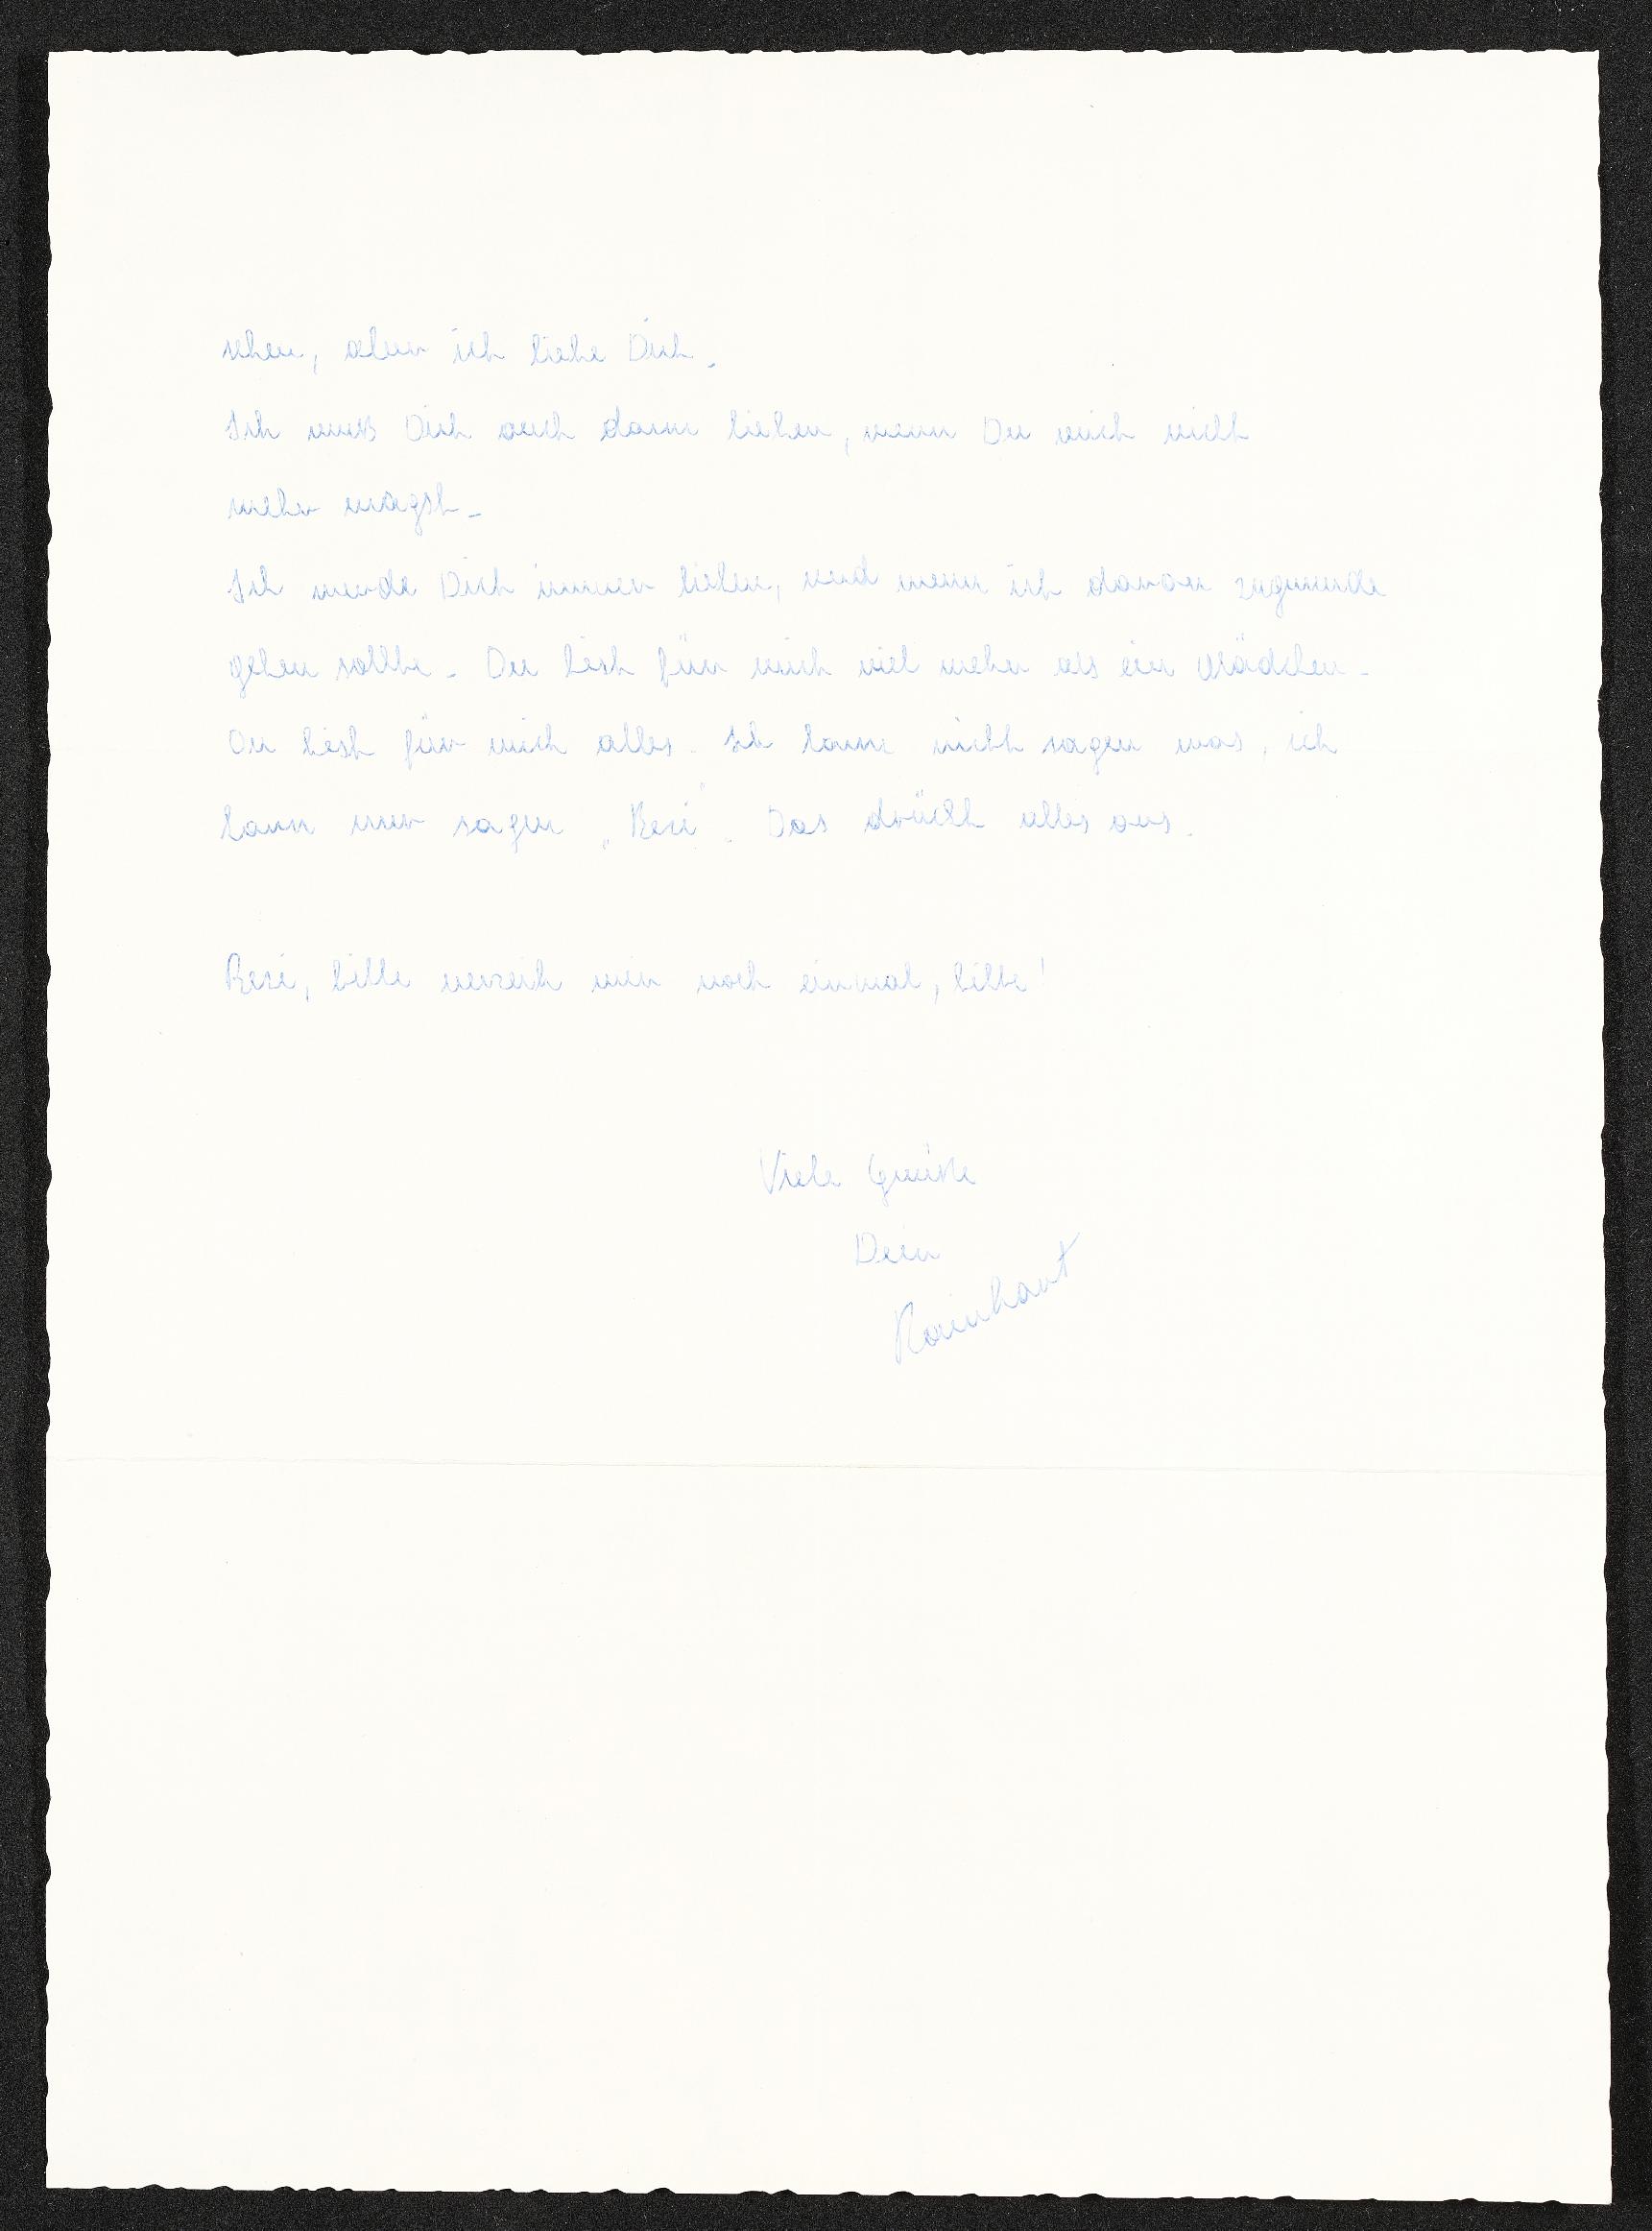 sehen, aber ich liebe Dich.
Ich muß Dich auch dann lieben, wenn Du mich nicht
mehr magst.
Ich werde Dich immer lieben, und wenn ich daran zugrunde
gehen sollte. Du bist für mich viel mehr als ein Mädchen.
Du bist für mich alles. Ich kann nicht sagen was, ich
kann nur sagen „Resi". Das drückt alles aus.
Resi, bitte verzeih mir noch einmal, bitte!
Viele Grüße
Dein
Rainhart